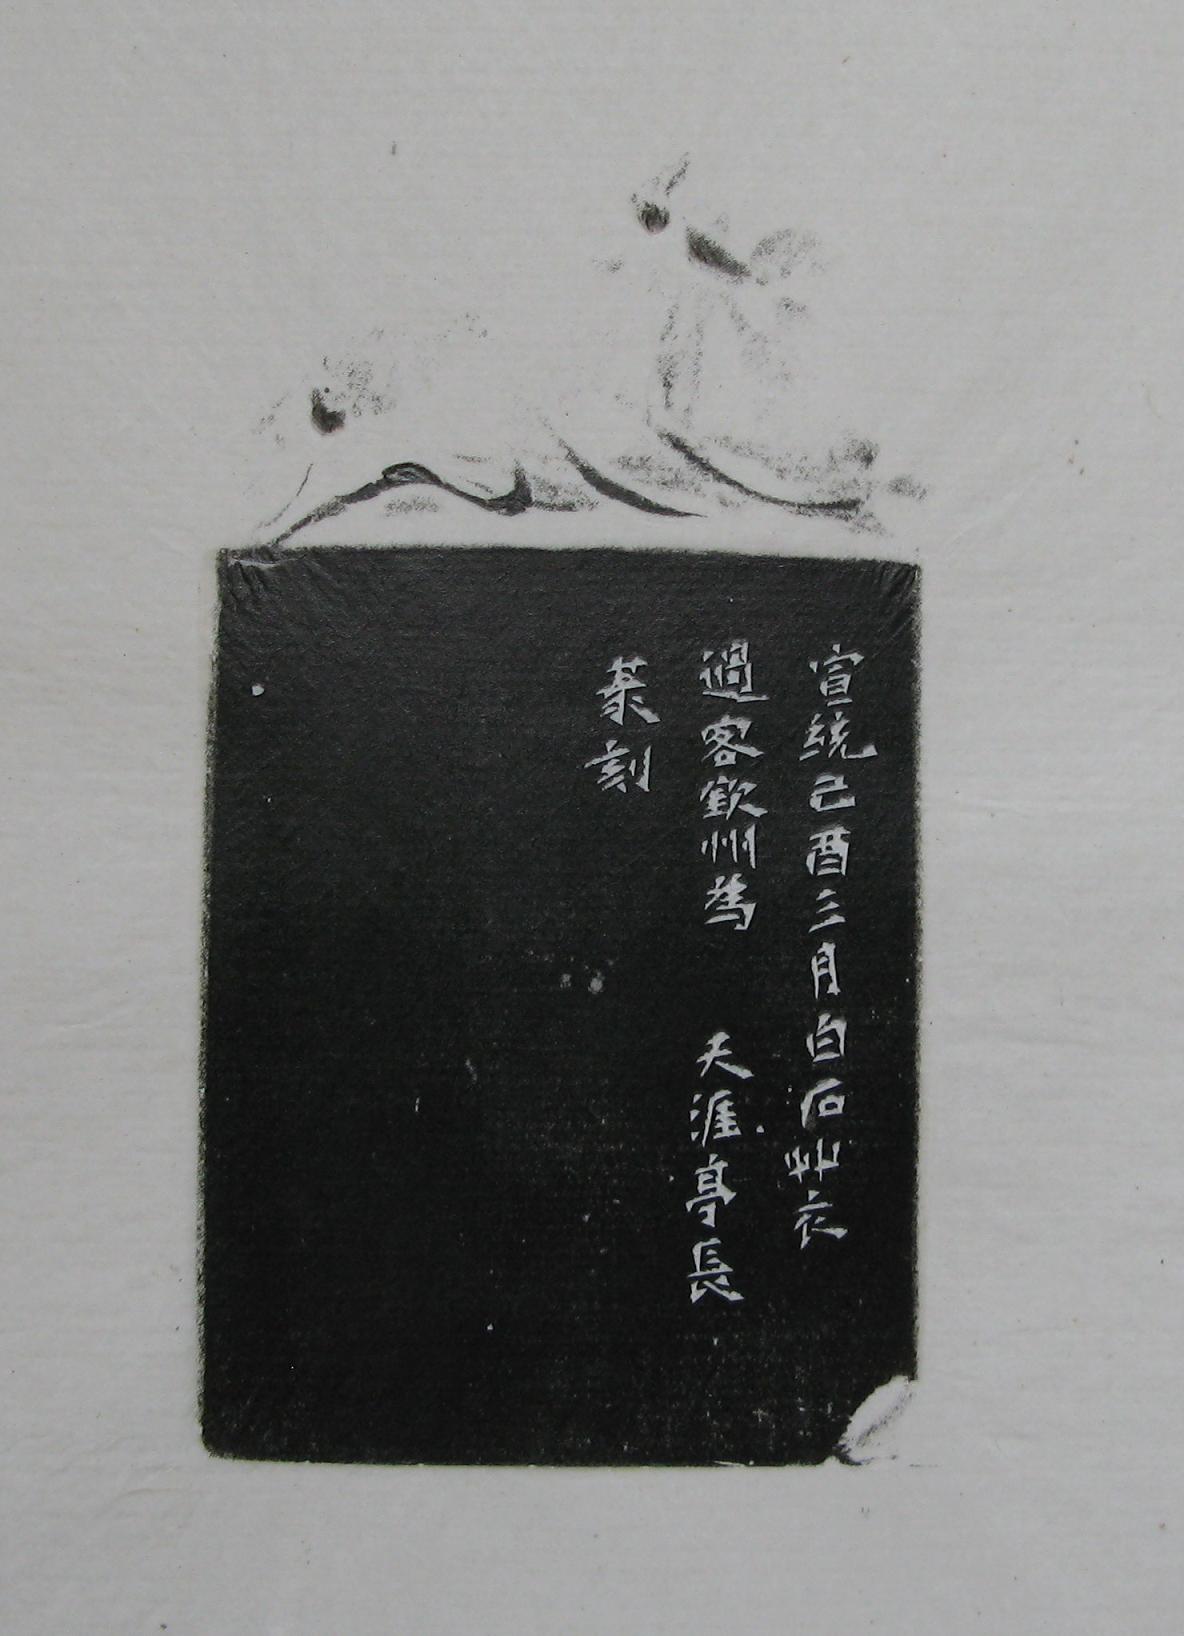 宣統己酉三月白石艸衣
過客欽州為　天涯亭長
篆刻